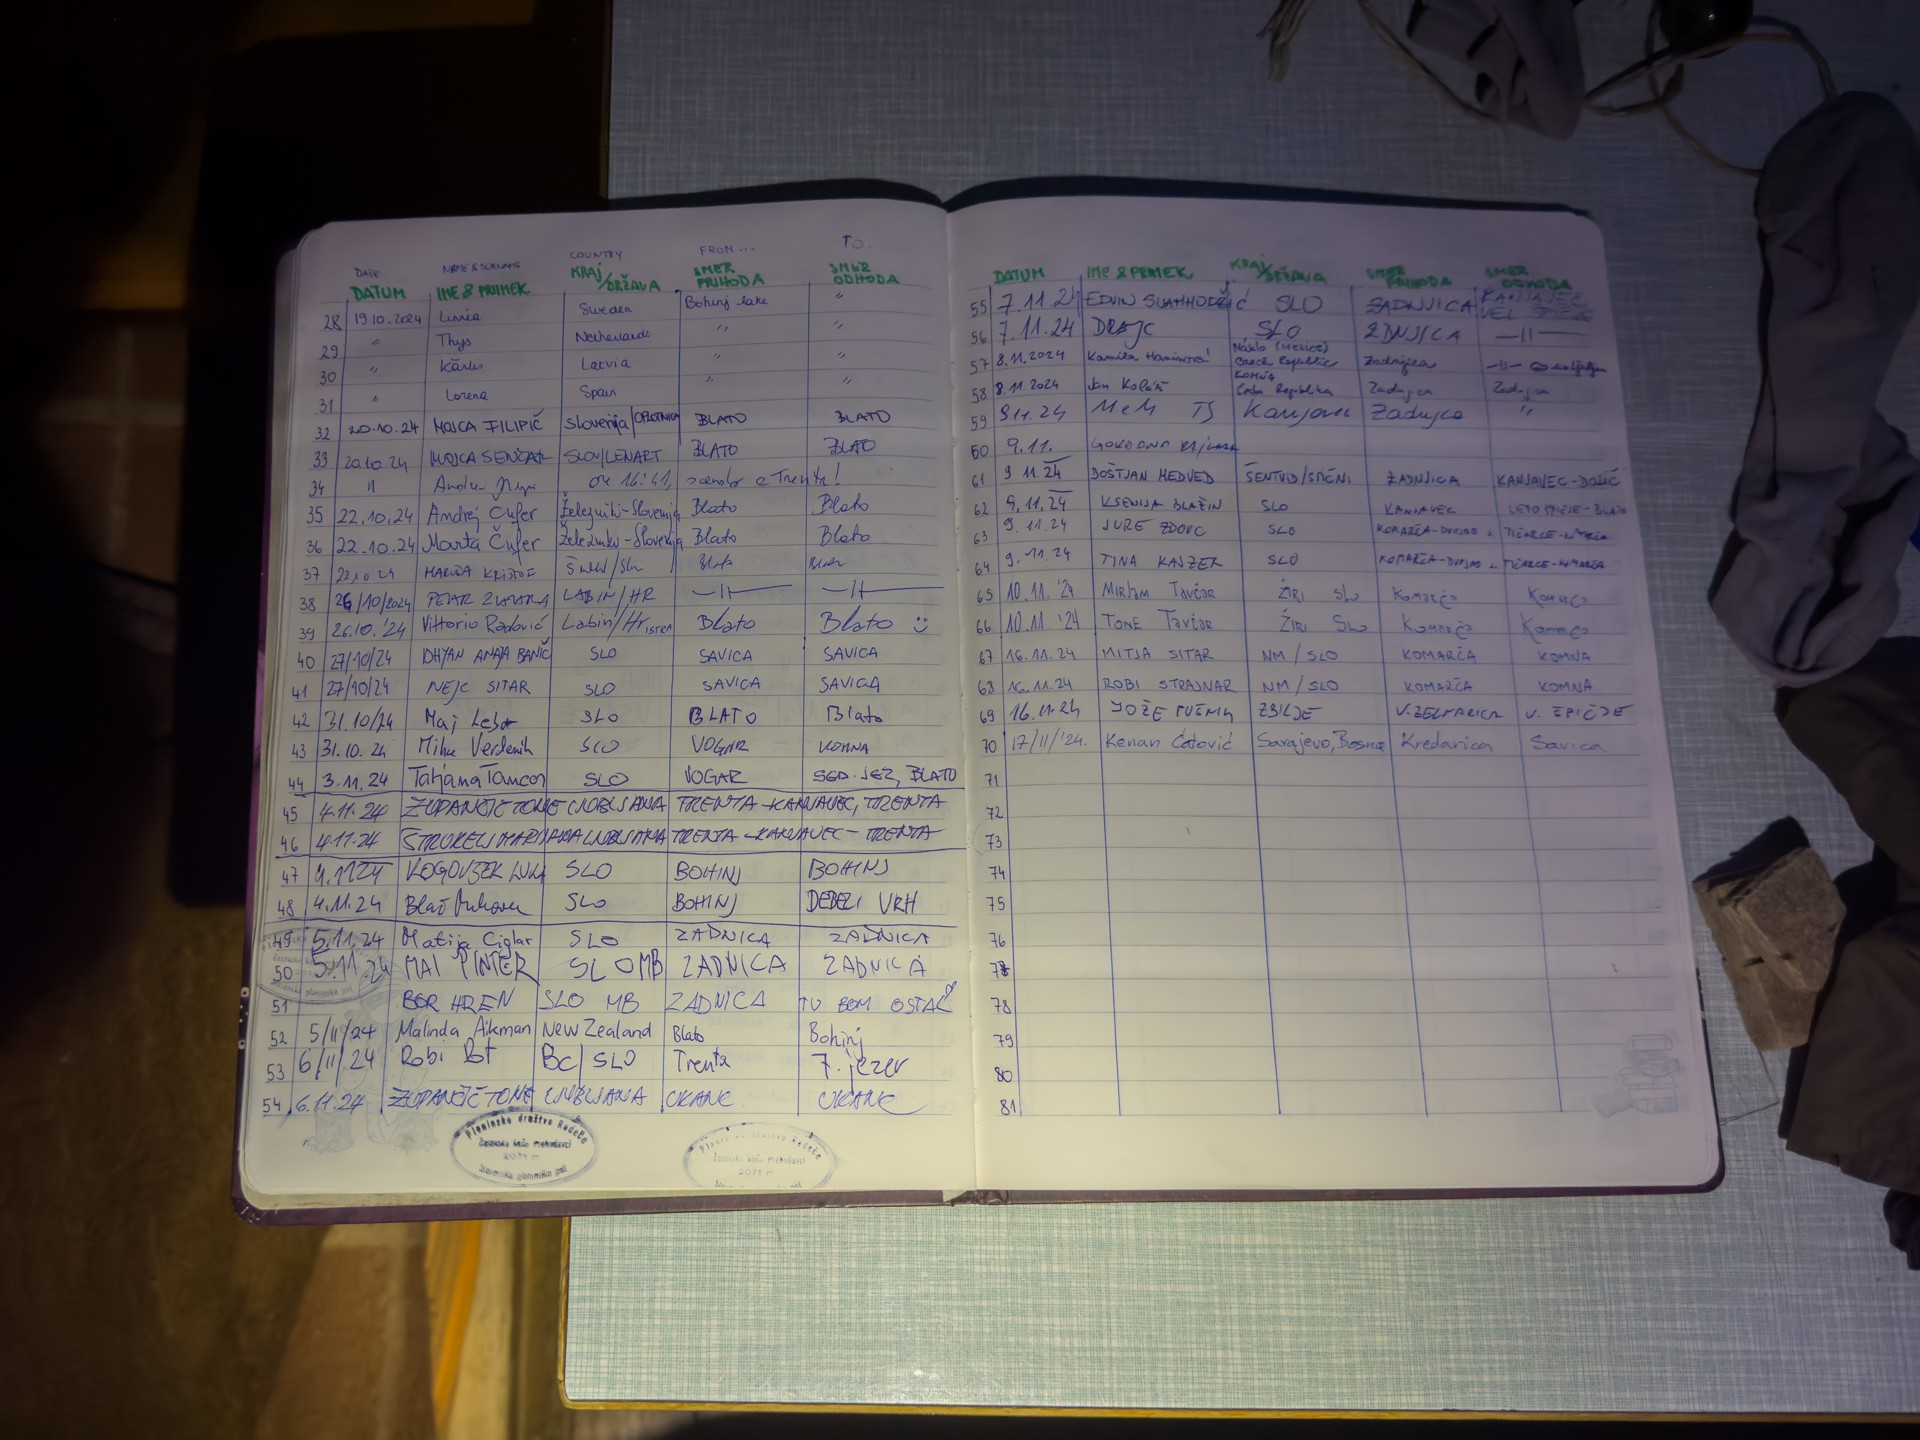 DATE NAME & SURNAME COUNTRY FROM ... TO.
DATUM IME & PRIIMEK KRAJ/DRŽAVA SMER PRIHODA SMER ODHODA
28 19 10.2024 Linnea Sweden Bohinj lake "
29 " Thys " "
30 " Kārlis Latvia " "
31 " Lorena Spain " "
32 20.10.24 MOJCA FILIPIČ Slovenija/OPLOTNICA BLATO BLATO
33 20.10 24 MOJCA SENČAR SLO/LENART BLATO BLATO
34 " ore 16:41, a Trenta!
35 22.10.24 Andrej Čufer Železniki-Slovenija Blato Blato
36 22.10.24 Marta Čufer Železniki-Slovenija Blato Blato
37 22 10 24 MARIJA KRIŠTOF Blato Blato
38 26/10/2024 PETAR LABIN/HR —||— —||—
39 26.10.'24 Vittorio Radović Labin/Hr ISTRA Blato Blato
40 27/10/24 SLO SAVICA SAVICA
41 27/10/24 NEJC SITAR SLO SAVICA SAVICA
42 31.10/24 Maj SLO BLATO Blato
43 31.10.24 Miha Verdenik SLO VOGAR KOMNA
44 3.11.24 Tatjana Tamcos SLO VOGAR SED. JEZ, BLATO
45 4.11.24 ZUPANČIČ TONE LJUBLJANA TRENTA - KANJAVEC, TRENTA
46 4.11.24 ŠTRUKELJ MARIJANA LJUBLJANA TRENTA - KANJAVEC - TRENTA
47 4.11 24 KOGOVŠEK LUKA SLO BOHINJ BOHINJ
48 4.11.24 Blaž SLO BOHINJ DEBELI VRH
49 5.11.24 Matija Ciglar SLO ZADNICA ZADNICA
50 5.11 24 MAI PINTER SLO MB ZADNICA ZADNICA
51 BOR HREN SLO MB ZADNICA TU BOM OSTAL
52 5/11/24 Malinda Aikman New Zealand Blato Bohinj
53 6/11/24 Robi Bt BC/SLO Trenta 7. jezer
54 6.11.24 ZUPANČIČ TONE LJUBLJANA UKANC UKANC
Planinsko društvo Radeče
Zasavska koča Prehodavci
2071 m
Slovenska planinska pot
Planinsko društvo Radeče
Zasavska koča Prehodavci
2071 m
DATUM IME & PRIIMEK KRAJ/DRŽAVA SMER PRIHODA SMER ODHODA
55 7.11.24 EDVIN SLO ZADNJICA KANJAVEC
56 7.11.24 DRAJC SLO ZDNJICA —||—
57 8.11.2024 Kamila Czech Republic Zadnjica —||—
58 8.11.2024 Jan Kolář Czech Republika Zadnjca Zadnjca
59 9.11.24 MeM TJ Kanjavec Zadnjca "
60 9.11.
61 9 11.24 BOŠTJAN MEDVED ŠENTVID/STIČNI ZADNJICA KANJAVEC-DOLIČ
62 9.11.24 KSENIJA BLAŽIN SLO KANJAVEC
63 9.11.24 JURE ZDOVC SLO
64 9.11.24 TINA KAJZER SLO
65 10.11.'24 Mirjam Tavčar ŽIRI SLO Komarča Komarča
66 10.11 '24 TONE Tavčar ŽIRI SLO Komarča Komarča
67 16.11.24 MITJA SITAR NM/SLO KOMARČA KOMNA
68 16.11.24 ROBI STRAJNAR NM/SLO KOMARČA KOMNA
69 16.11.24 JOŽE ZBILJE V.ZELNARICA V. ŠPIČJE
70 17/11/'24. Kenan Ćatović Sarajevo, Bosna Kredarica Savica
71
72
73
74
75
76
77
78
79
80
81